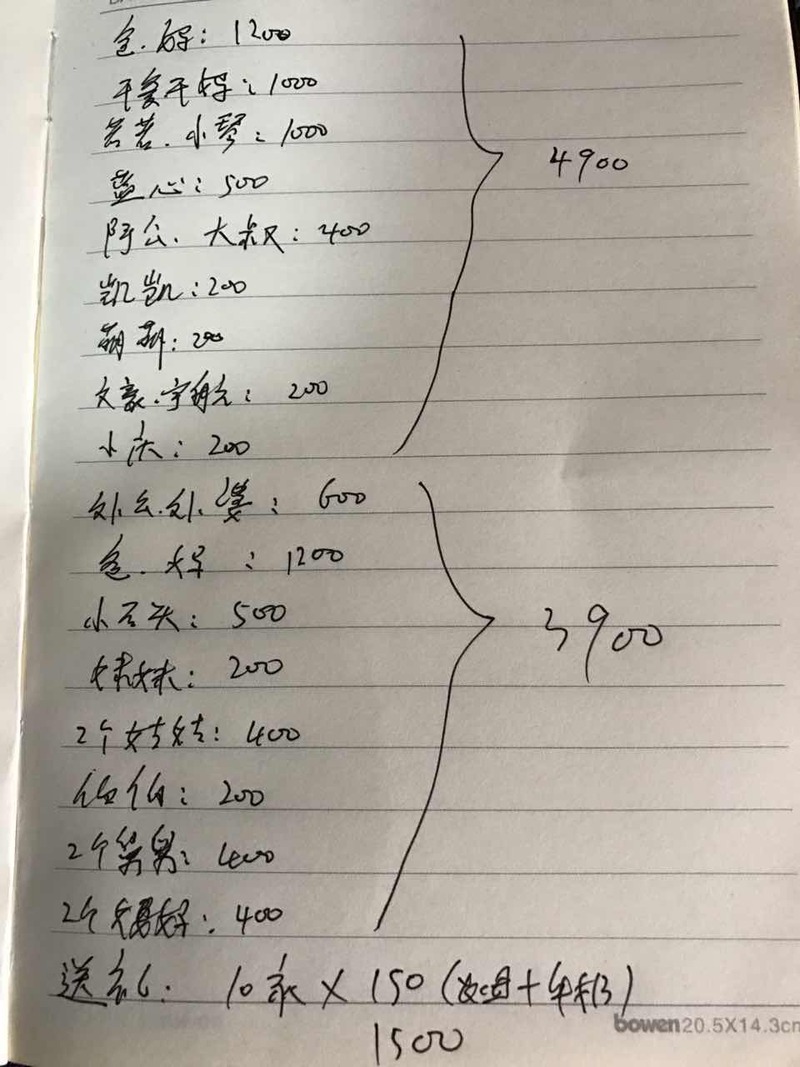 爸.妈: 1200
干爹干妈: 1000
若若.小琴: 1000
蓝心: 500
阿公.大叔: 400
凯凯: 200
萌萌: 200
文豪.宇航: 200
小庆: 200
4900
外公.外婆: 600
爸.妈: 1200
小石头: 500
妹妹: 200
2个姑姑: 400
伯伯: 200
2个舅舅: 400
2个舅妈: 400
3900
送礼: 10家 X 150 (+)
1500
bowen 20.5X14.3cm